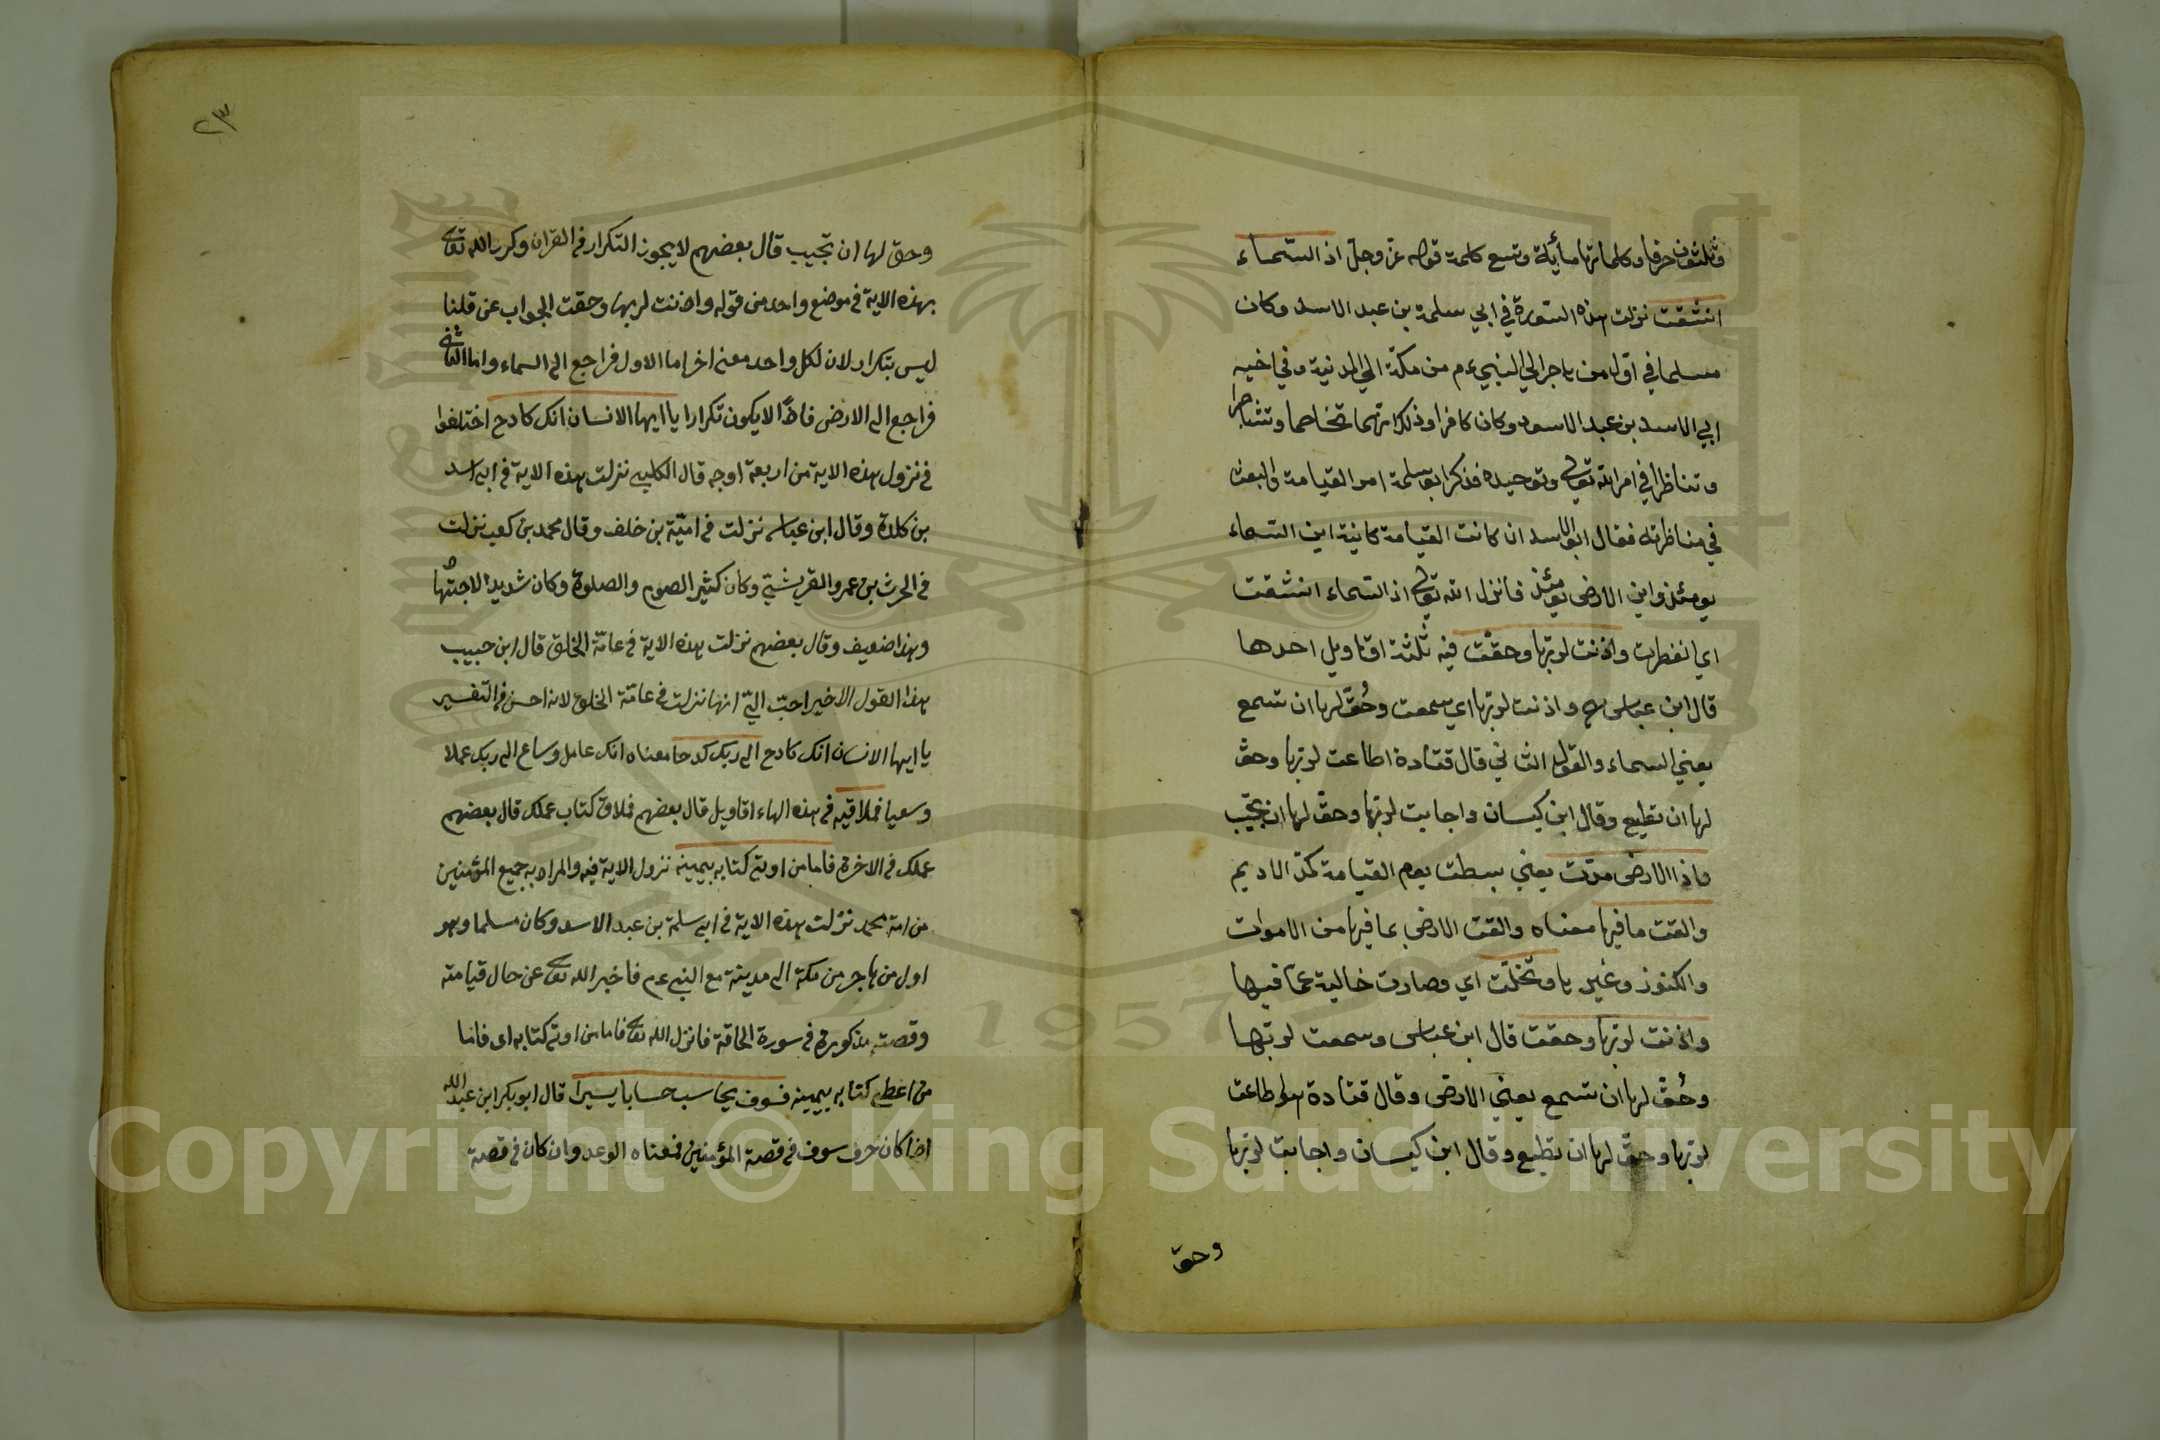 وثلثون حرفا وكلماتها مأية وتسع كلمة قوله عزّ وجلّ اذ السّماء
انشقت نزلت هذه السّورة في ابي سلمة بن عبد الاسد وكان
مسلما في اوّل من هاجر الي النبي ءم من مكّة الي المدنية وفي اخيه
ابي الاسد بن عبد الاسود وكان كافرا وذلك انّهما تخاصما وتشاجرا
وتناظرا في امر الله تعالى وتوحيده فذكر ابو سلمة امر القيامة والبعث
في مناظرته فقال ابو الاسد ان كانت القيامة كائنة اين السّماء
يومئذ واين الارض يومئذ فانزل الله تعالى اذ السّماء انشقت
اي انفطرت واذنت لربّها وحقّت فيه ثلثة اقاويل احدها
قال ابن عباس واذنت لربّها اي سمعت وحُقّ لها ان تسمع
يعني السماء والقول الثاني قال قتادة اطاعت لربّها وحقّ
لها ان تطيع وقال ابن كيسان واجابت لربّها وحقّ لها ان تجيب
واذا الارض مدّت يعني بسطت يوم القيامة كمدّ الاديم
والقت ما فيها معناه والقت الارض بما فيها من الاموات
والكنوز وغيرها وتخلّت اي وصارت خالية عمّا فيها
واذنت لربّها وحقت قال ابن عباس وسمعت لربّها
وحُقّ لها ان تسمع يعني الارض وقال قتادة اطاعت
لربّها وحقّ لها ان تطيع وقال ابن كيسان واجابت لربّها
وحقّ
٢٣
وحق لها ان تجيب قال بعضهم لا يجوز التكرار في القران وكرر الله تعالى
بهذه الاية في موضع واحد من قوله واذنت لربها وحقت الجواب عن قلنا
ليس بتكرار لان لكل واحد معنى اخر اما الاول فراجع الى السماء واما الثاني
فراجع الى الارض فاذًا لا يكون تكرارا يا ايها الانسان انك كادح اختلفوا
في نزول هذه الاية من اربعة اوجه قال الكلبي نزلت هذه الاية في ابي اسد
بن كلدة وقال ابن عباس نزلت في اميّة بن خلف وقال محمد بن كعب نزلت
في الحرث بن عمرو القريشيّ وكان كثير الصوم والصلوة وكان شديد الاجتهاد
وهذا ضعيف وقال بعضهم نزلت هذه الاية في عامّة الخلق قال ابن حبيب
هذا القول الاخير احبّ اليّ انها نزلت في عامّة الخلق لانه احسن في التفسير
يا ايها الانسان انك كادح الى ربك كدحا معناه انك عامل وساع الى ربك عملا
وسعيا فملاقيه في هذه الهاء اقاويل قال بعضهم فلاق كتاب عملك قال بعضهم
عملك في الاخرة فاما من اوتي كتابه بيمينه نزول الاية فيه والمراد به جميع المؤمنين
من امة محمد نزلت هذه الاية في ابي سلمة بن عبد الاسد وكان مسلما وهو
اول من هاجر من مكة الى مدينة مع النبي ءم فاخبر الله تعالى عن حال قيامته
وقصته مذكورة في سورة الحاقة فانزل الله تعالى فاما من اوتي كتابه اي فاما
من اعطي كتابه بيمينه فسوف يحاسب حسابا يسيرا قال ابو بكر ابن عبد الله
اذا كان حرف سوف في قصة المؤمنين فمعناه الوعد وان كان في قصة
Copyright © King Saud University
1957